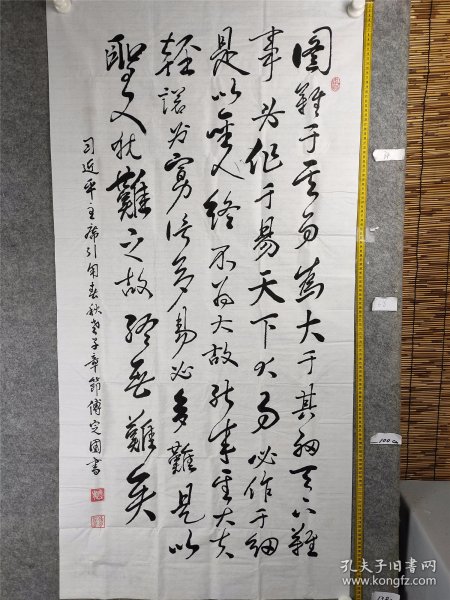 圖難于其易為大于其細天下難
事必作于易天下大事必作于細
是以聖人終不為大故能成其大夫
輕諾必寡信多易必多難是以
聖人犹難之故終無難矣
习近平主席引用春秋老子章節傅定國書
孔夫子旧书网
book.kongfz.com